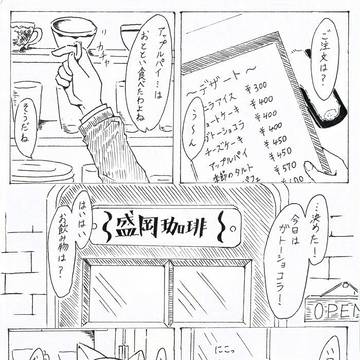 ご注文は?
～デザート～
ニラアイス ¥300
ートケーキ ¥400
ガトーショコラ ¥400
チーズケーキ ¥450
アップルパイ ¥450
季節のタルト ¥570
パフェ
う～ん
アップルパイ…は
おととい食べたわよね
カチャ
そうだね
…決めた!
今日は
ガトーショコラ!
盛岡珈琲
はいはい
お飲み物は?
OPEN
にこっ